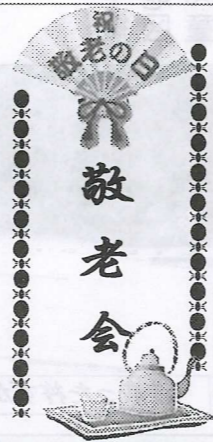 祝
敬老の日
敬老会